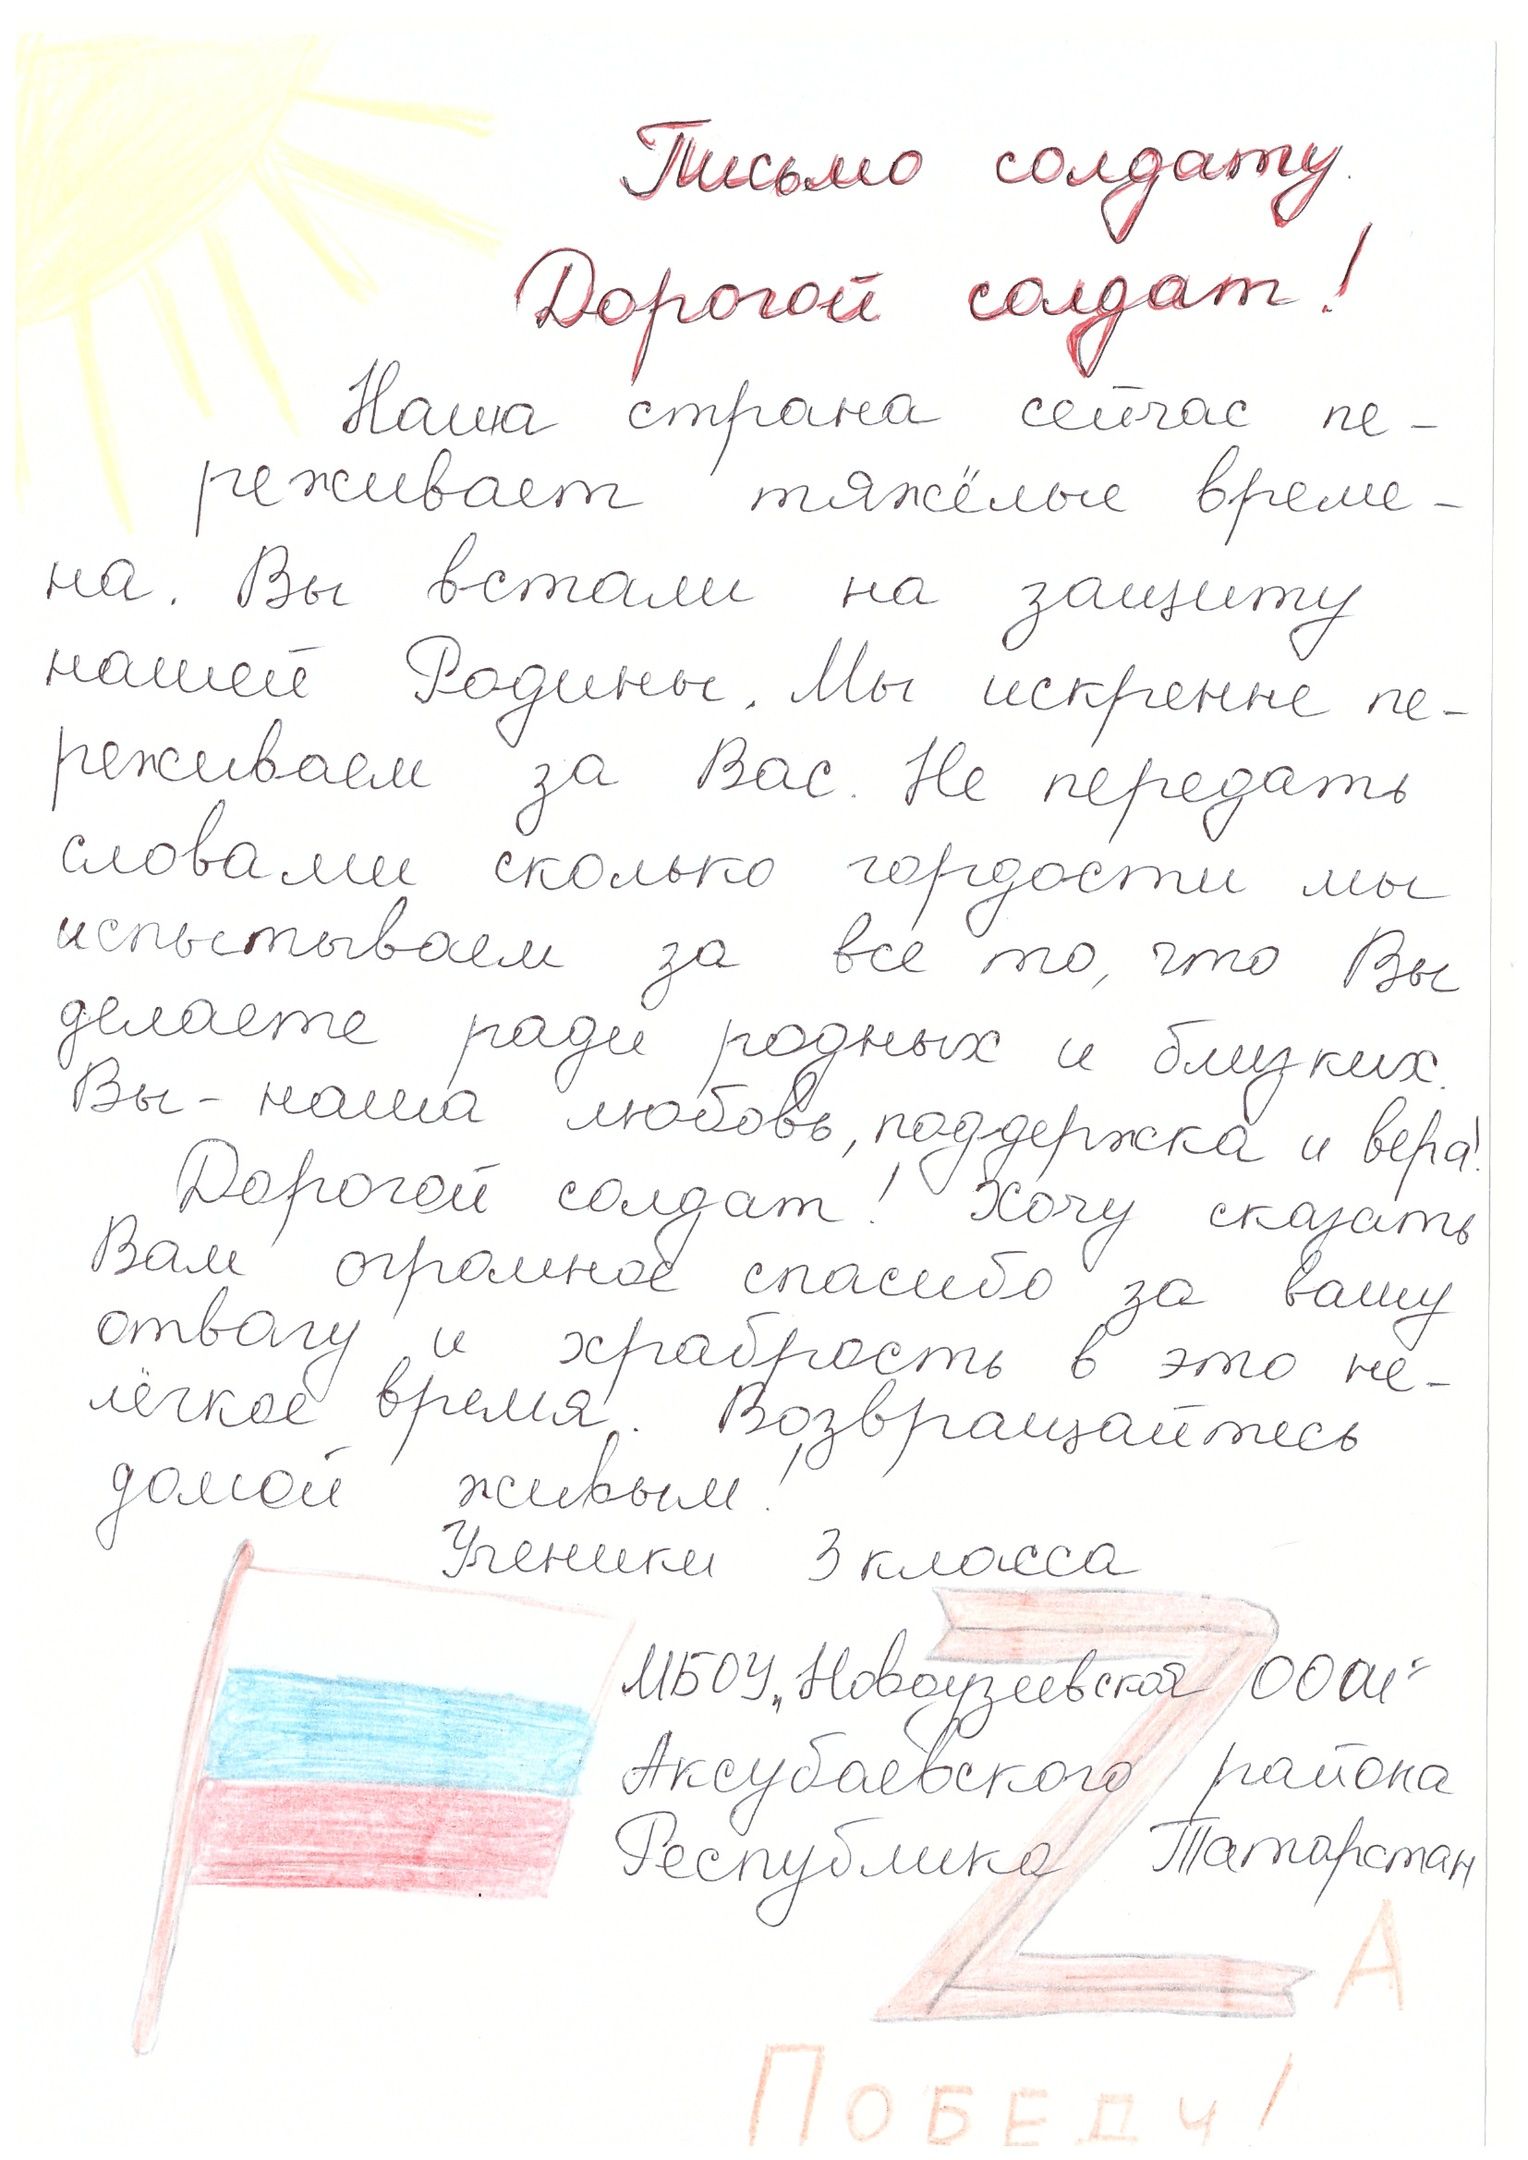 Письмо солдату.
Дорогой солдат!
Наша страна сейчас пе-
реживает тяжёлые време-
на. Вы встали на защиту
нашей Родины. Мы искренне пе-
реживаем за Вас. Не передать
словами сколько гордости мы
испытываем за все то, что Вы
делаете ради родных и близких.
Вы - наша любовь, поддержка и вера!
Дорогой солдат! Хочу сказать
Вам огромное спасибо за вашу
отвагу и храбрость в это не-
лёгкое время. Возвращайтесь
домой живым!
Ученики 3 класса
МБОУ „Новоузеевская ООШ"
Аксубаевского района
Республика Татарстан
ZА
ПОБЕДУ!